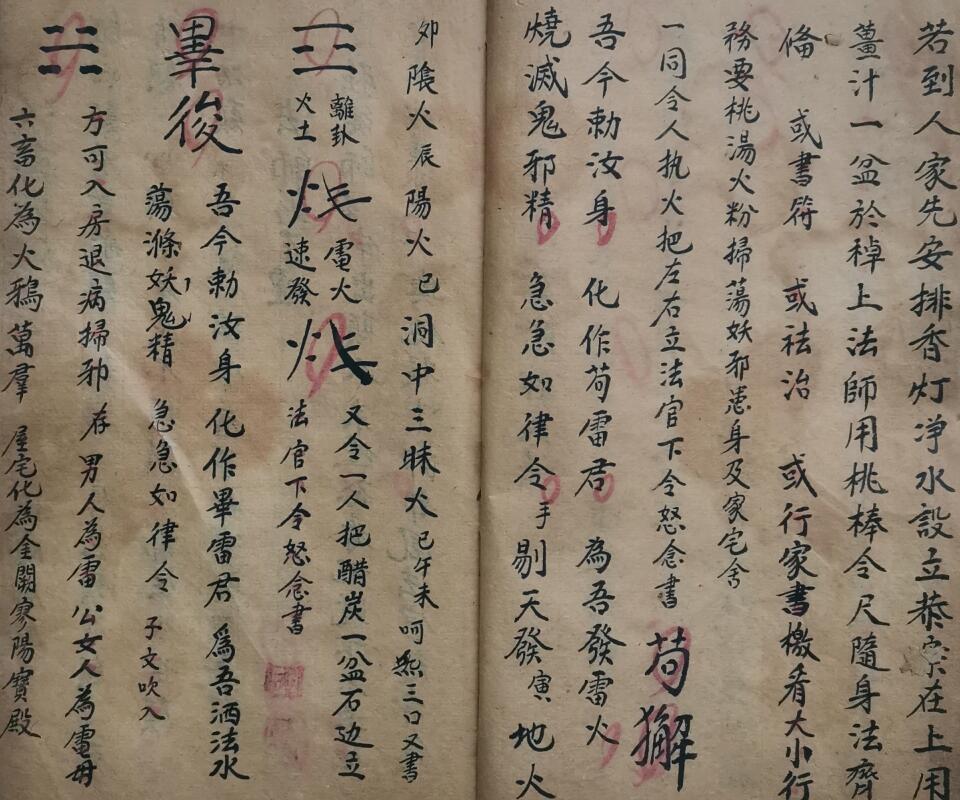 若到人家先安排香灯净水設立恭宗在上用
薑汁一盆於棹上法師用桃棒令尺隨身法齊
俻 或書符 或祛治 或行家書檄看大小行
務要桃湯火粉掃蕩妖邪患身及家宅舍
一同令人执火把左右立法官下令怒念書 苟獬
吾今勅汝身 化作苟雷君 為吾發雷火
燒滅鬼邪精 急急如律令 手剔天發寅地火
夘陰火辰陽火巳洞中三昧火 巳午未呵熙三口又書
離卦 電火 又令一人把醋炭一盆石边立
火土 速發 法官下令怒念書
畢後
吾今勅汝身 化作畢雷君 爲吾洒法水
蕩滌妖鬼精 急急如律令 子文吹入
方可入房退病掃邪 存男人為雷公女人為電母
六畜化為火鴉萬羣 屋宅化為金闕寥陽寶殿